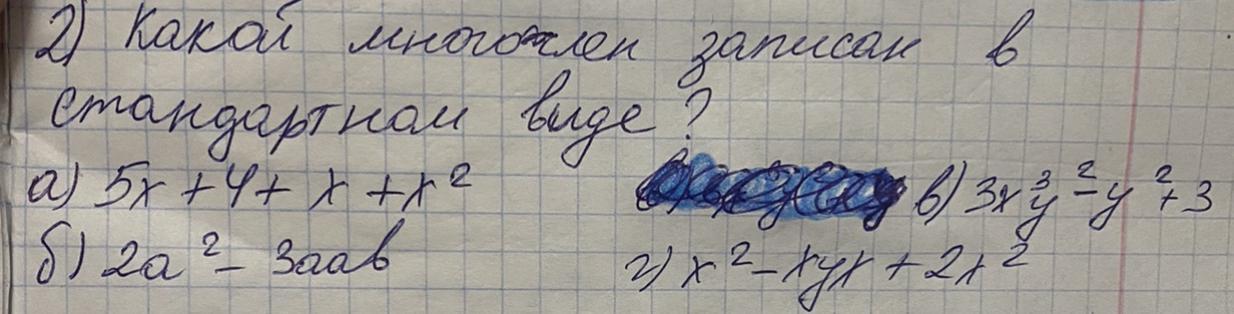 2) Какой многочлен записан в
стандартном виде?
а) 5x + 4 + x + x² в) 3x³y² - y² + 3
б) 2a² - 3aab г) x² - xyx + 2x²